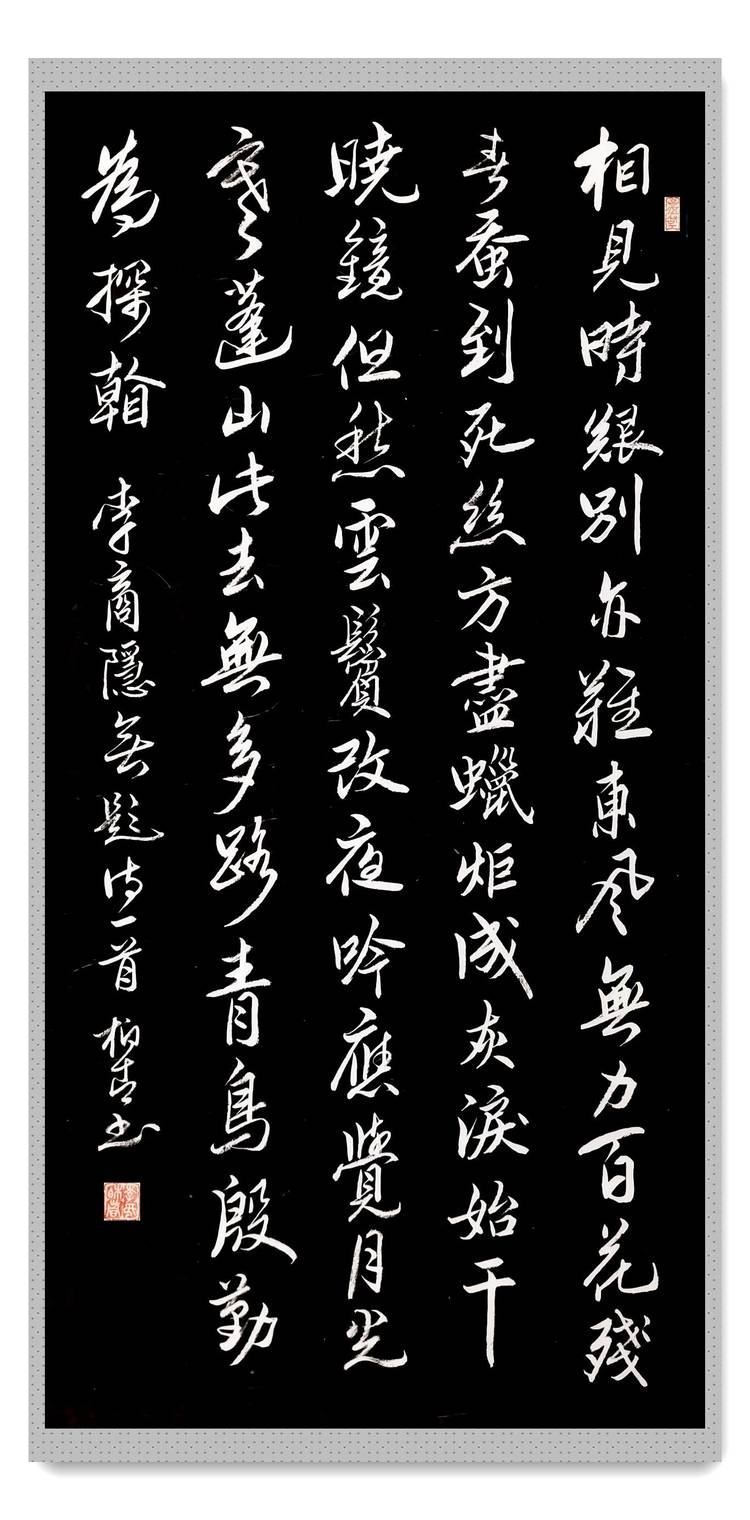 相見時艱別亦難東風無力百花殘
春蚕到死絲方盡蠟炬成灰淚始干
曉鏡但愁雲鬢改夜吟應覺月光
寒蓬山此去無多路青鳥殷勤
為探看 李商隱無題诗一首 柏青书